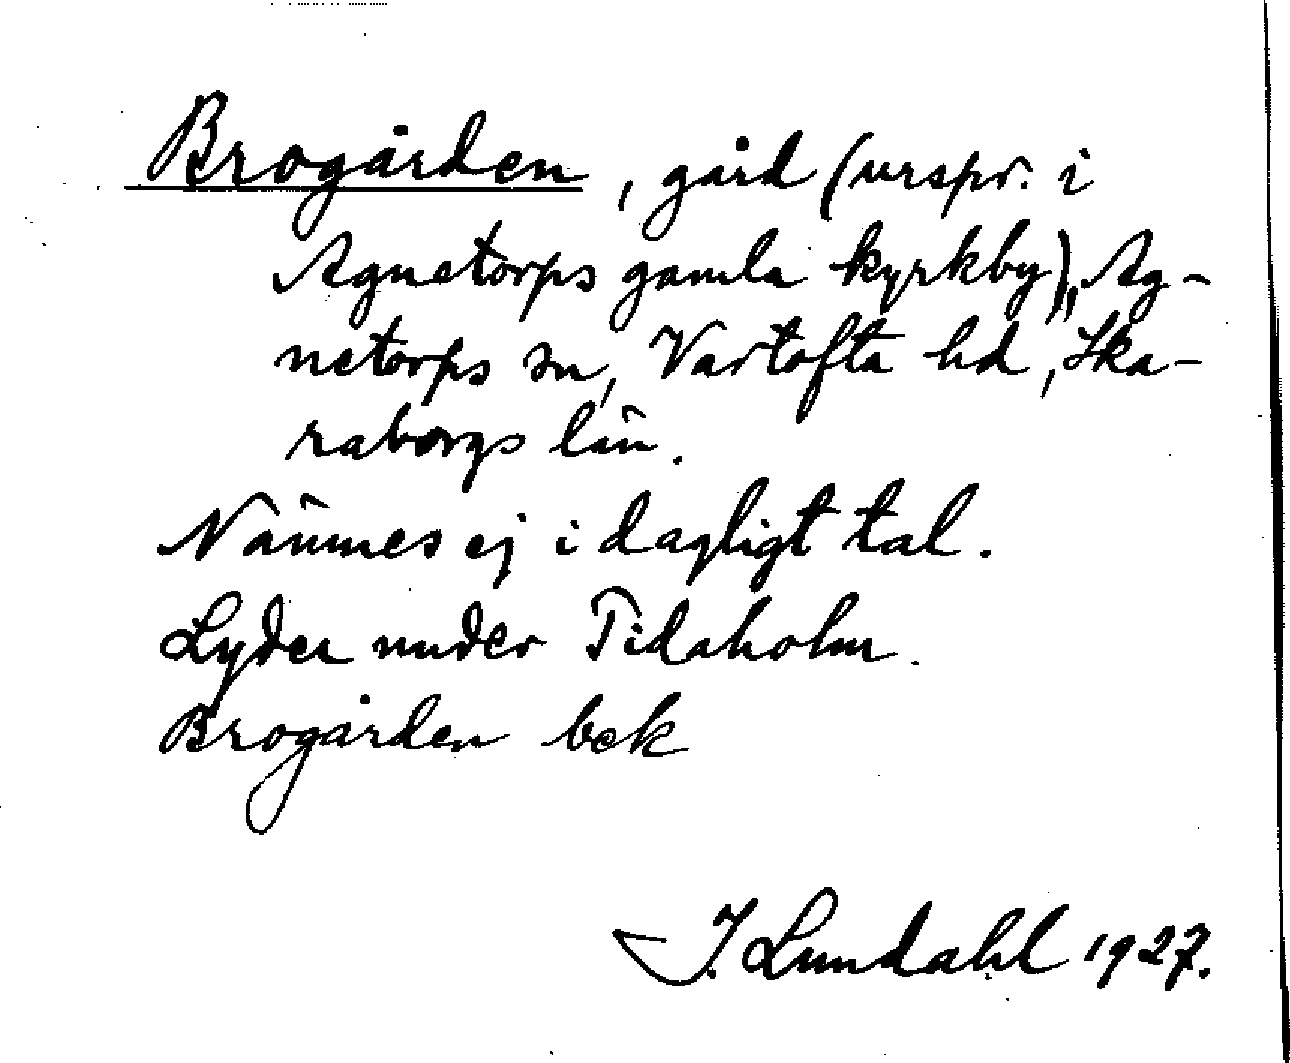 Brogården, gård (urspr. i
Agnetorps gamla kyrkby), Ag-
netorps sn, Vartofta hd, Ska-
raborgs län.
Nämnes ej i dagligt tal.
Lyder under Tidaholm.
Brogården bek
I. Lundahl 1927.